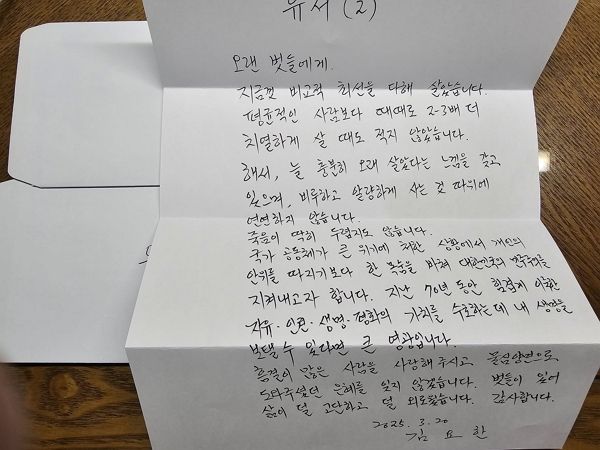 유서 (2)
오랜 벗들에게.
지금껏 비교적 최선을 다해 살았습니다.
평균적인 사람보다 때때로 2-3배 더
치열하게 살 때도 적지 않았습니다.
해서, 늘 충분히 오래 살았다는 느낌을 갖고
있으며, 비루하고 알량하게 사는 것 따위에
연연하지 않습니다.
죽음이 딱히 두렵지도 않습니다.
국가 공동체가 큰 위기에 처한 상황에서 개인의
안위를 따지기보다 한 목숨을 바쳐 대한민국의
지켜내고자 합니다. 지난 70년 동안 힘겹게 이룩한
자유·인권·생명·평화의 가치를 수호하는데 내 생명을
보탤 수 있다면 큰 영광입니다.
흠결이 많은 사람을 사랑해 주시고 물심양면으로
도와주셨던 은혜를 잊지 않겠습니다. 벗들이 있어
삶이 덜 고단하고 덜 외로웠습니다. 감사합니다.
2025. 3. 20
김 요 한